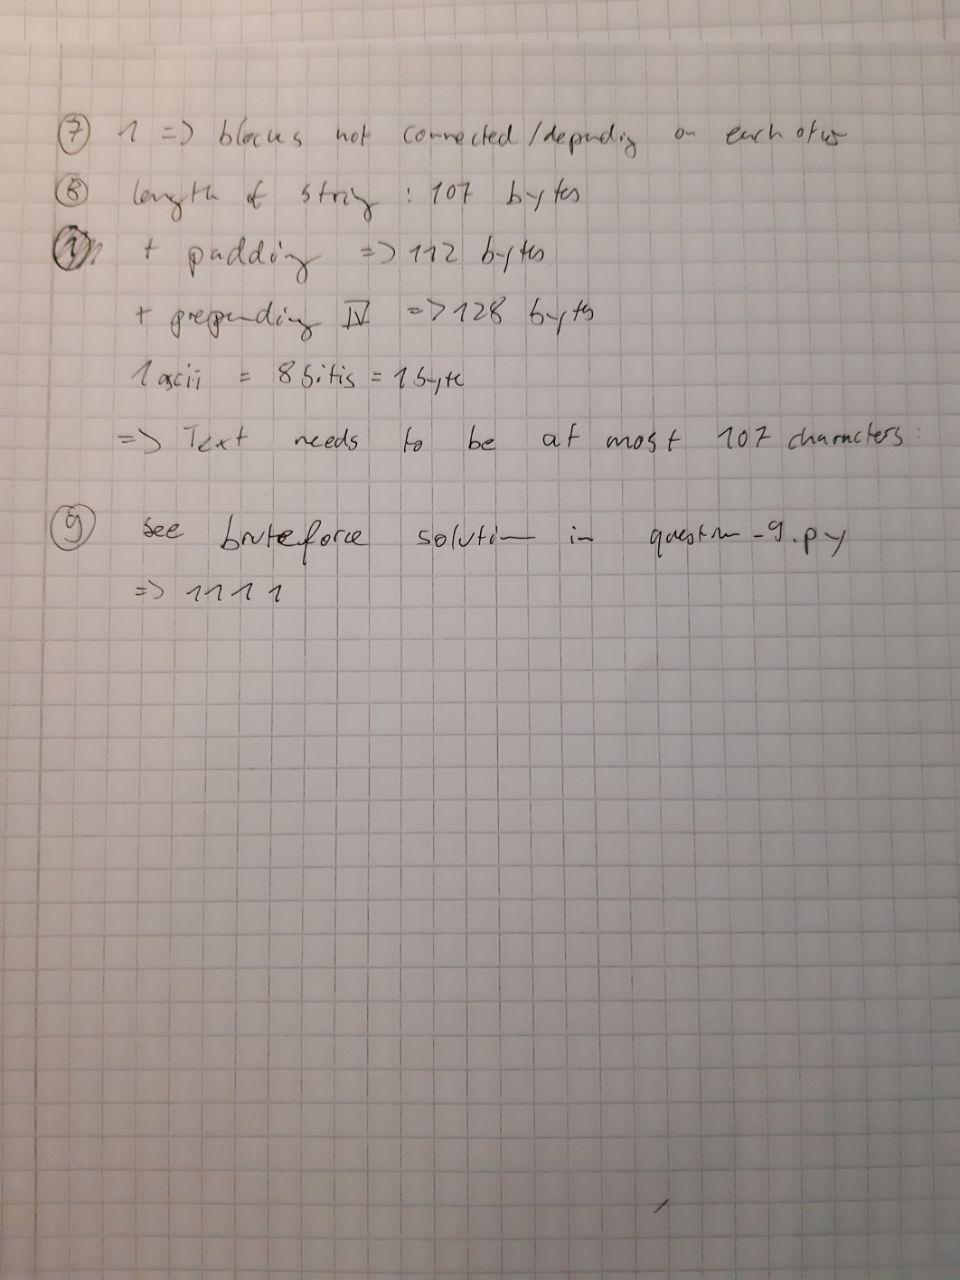 7 1 => blocks not connected/depending on each other
8 length of string : 107 bytes
+ padding => 112 bytes
+ prepending IV => 128 bytes
1 ascii = 8 bitis = 1 byte
=> Text needs to be at most 107 characters:
9 see bruteforce solution in question_9.py
=> 1111